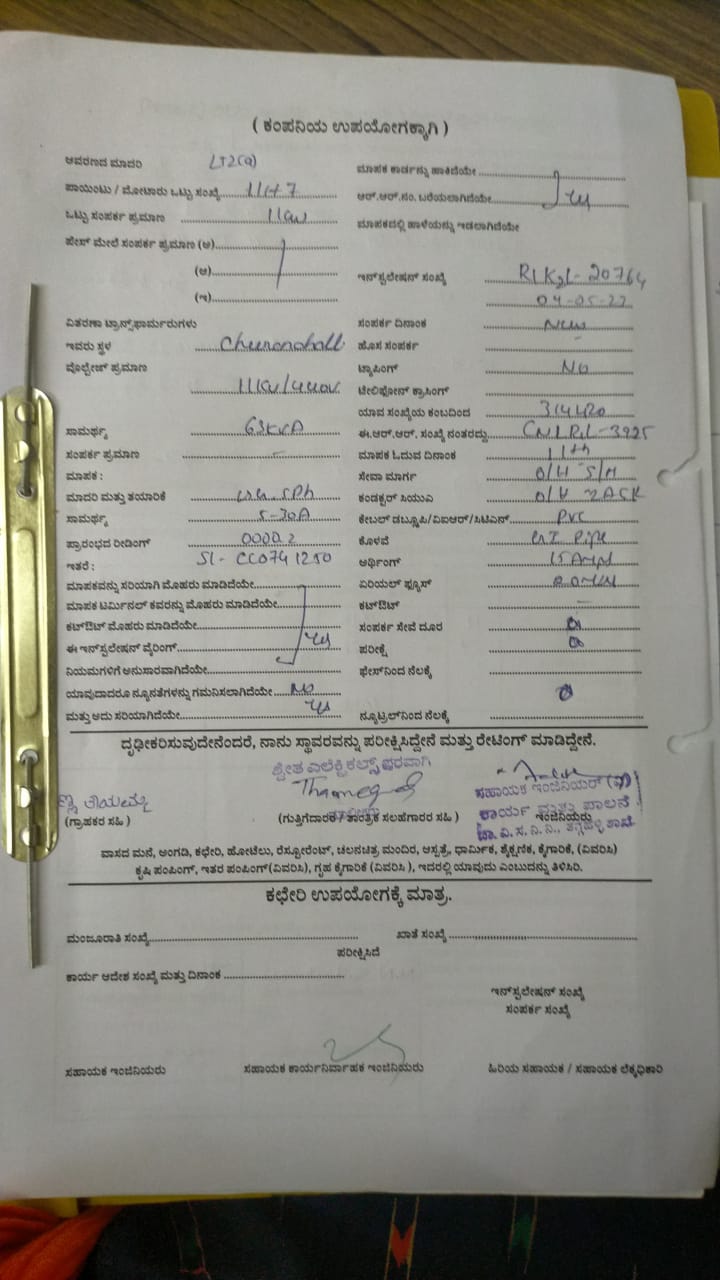 ( ಕಂಪನಿಯ ಉಪಯೋಗಕ್ಕಾಗಿ )
ಆವರಣದ ಮಾದರಿ LT2(a)
ಮಾಪಕ ಕಾರ್ಡನ್ನು ಹಾಕಿದೆಯೇ
ಪಾಯಿಂಟು / ಮೋಟಾರು ಒಟ್ಟು ಸಂಖ್ಯೆ
ಆರ್.ಆರ್.ನಂ. ಬರೆಯಲಾಗಿದೆಯೇ
ಒಟ್ಟು ಸಂಪರ್ಕ ಪ್ರಮಾಣ 1KW
ಮಾಪಕದಲ್ಲಿ ಹಾಳೆಯನ್ನು ಇಡಲಾಗಿದೆಯೇ
ಫೇಸ್ ಮೇಲೆ ಸಂಪರ್ಕ ಪ್ರಮಾಣ (ಅ)
(ಆ)
ಇನ್‌ಸ್ಟಲೇಷನ್ ಸಂಖ್ಯೆ 20764
(ಇ)
04-05-22
ವಿತರಣಾ ಟ್ರಾನ್ಸ್‌ಫಾರ್ಮರುಗಳು
ಸಂಪರ್ಕ ದಿನಾಂಕ New
ಇವರು ಸ್ಥಳ
ಹೊಸ ಸಂಪರ್ಕ
ವೊಲ್ಟೇಜ್ ಪ್ರಮಾಣ 11KV/440V
ಟ್ಯಾಪಿಂಗ್ No
ಟೆಲಿಫೋನ್ ಕ್ರಾಸಿಂಗ್
ಯಾವ ಸಂಖ್ಯೆಯ ಕಂಬದಿಂದ
ಸಾಮರ್ಥ್ಯ 63KVA
ಈ.ಆರ್.ಆರ್. ಸಂಖ್ಯೆ ನಂತರದ್ದು
ಸಂಪರ್ಕ ಪ್ರಮಾಣ -
ಮಾಪಕ ಓದುವ ದಿನಾಂಕ 11th
ಮಾಪಕ :
ಸೇವಾ ಮಾರ್ಗ O/H S/M
ಮಾದರಿ ಮತ್ತು ತಯಾರಿಕೆ
ಕಂಡಕ್ಟರ್ ಸಿಯುಎ
ಸಾಮರ್ಥ್ಯ 5-30A
ಕೇಬಲ್ ಡಬ್ಲೂಪಿ/ವಿಐಆರ್/ಸಿಟಿಎಸ್ PVC
ಪ್ರಾರಂಭದ ರೀಡಿಂಗ್ 0000.2
ಕೊಳವೆ GI Pipe
ಇತರೆ : Sl-
ಅರ್ಥಿಂಗ್
ಮಾಪಕವನ್ನು ಸರಿಯಾಗಿ ಮೊಹರು ಮಾಡಿದೆಯೇ
ಏರಿಯಲ್ ಫ್ಯೂಸ್
ಮಾಪಕ ಟರ್ಮಿನಲ್ ಕವರನ್ನು ಮೊಹರು ಮಾಡಿದೆಯೇ
ಕಟ್‌ಔಟ್ -
ಕಟ್‌ಔಟ್ ಮೊಹರು ಮಾಡಿದೆಯೇ
ಸಂಪರ್ಕ ಸೇವೆ ದೂರ
ಈ ಇನ್‌ಸ್ಟಲೇಷನ್ ವೈರಿಂಗ್ yes
ಪರೀಕ್ಷೆ
ನಿಯಮಗಳಿಗೆ ಅನುಸಾರವಾಗಿದೆಯೇ
ಫೇಸ್‌ನಿಂದ ನೆಲಕ್ಕೆ
ಯಾವುದಾದರೂ ನ್ಯೂನತೆಗಳನ್ನು ಗಮನಿಸಲಾಗಿದೆಯೇ No
ಮತ್ತು ಅದು ಸರಿಯಾಗಿದೆಯೇ yes
ನ್ಯೂಟ್ರಲ್‌ನಿಂದ ನೆಲಕ್ಕೆ
ದೃಢೀಕರಿಸುವುದೇನೆಂದರೆ, ನಾನು ಸ್ಥಾವರವನ್ನು ಪರೀಕ್ಷಿಸಿದ್ದೇನೆ ಮತ್ತು ರೇಟಿಂಗ್ ಮಾಡಿದ್ದೇನೆ.
ಶ್ವೇತ ಎಲೆಕ್ಟ್ರಿಕಲ್ಸ್ ಪರವಾಗಿ
ಸಹಾಯಕ ಇಂಜಿನಿಯರ್ (ವಿ)
ಕಾರ್ಯ ಮತ್ತು ಪಾಲನೆ
(ಗ್ರಾಹಕರ ಸಹಿ)
(ಗುತ್ತಿಗೆದಾರರ / ತಾಂತ್ರಿಕ ಸಲಹೆಗಾರರ ಸಹಿ )
ಇಂಜಿನಿಯರು
ಚಾ.ವಿ.ಸ.ನಿ.ನಿ.,
ವಾಸದ ಮನೆ, ಅಂಗಡಿ, ಕಛೇರಿ, ಹೋಟೆಲು, ರೆಸ್ಟೋರೆಂಟ್, ಚಲನಚಿತ್ರ ಮಂದಿರ, ಆಸ್ಪತ್ರೆ, ಧಾರ್ಮಿಕ, ಶೈಕ್ಷಣಿಕ, ಕೈಗಾರಿಕೆ, (ವಿವರಿಸಿ)
ಕೃಷಿ ಪಂಪಿಂಗ್, ಇತರ ಪಂಪಿಂಗ್ (ವಿವರಿಸಿ), ಗೃಹ ಕೈಗಾರಿಕೆ (ವಿವರಿಸಿ ), ಇದರಲ್ಲಿ ಯಾವುದು ಎಂಬುದನ್ನು ತಿಳಿಸಿರಿ.
ಕಛೇರಿ ಉಪಯೋಗಕ್ಕೆ ಮಾತ್ರ.
ಮಂಜೂರಾತಿ ಸಂಖ್ಯೆ
ಖಾತೆ ಸಂಖ್ಯೆ
ಪರೀಕ್ಷಿಸಿದೆ
ಕಾರ್ಯ ಆದೇಶ ಸಂಖ್ಯೆ ಮತ್ತು ದಿನಾಂಕ
ಇನ್‌ಸ್ಟಲೇಷನ್ ಸಂಖ್ಯೆ
ಸಂಪರ್ಕ ಸಂಖ್ಯೆ
ಸಹಾಯಕ ಇಂಜಿನಿಯರು
ಸಹಾಯಕ ಕಾರ್ಯನಿರ್ವಾಹಕ ಇಂಜಿನಿಯರು
ಹಿರಿಯ ಸಹಾಯಕ / ಸಹಾಯಕ ಲೆಕ್ಕಾಧಿಕಾರಿ